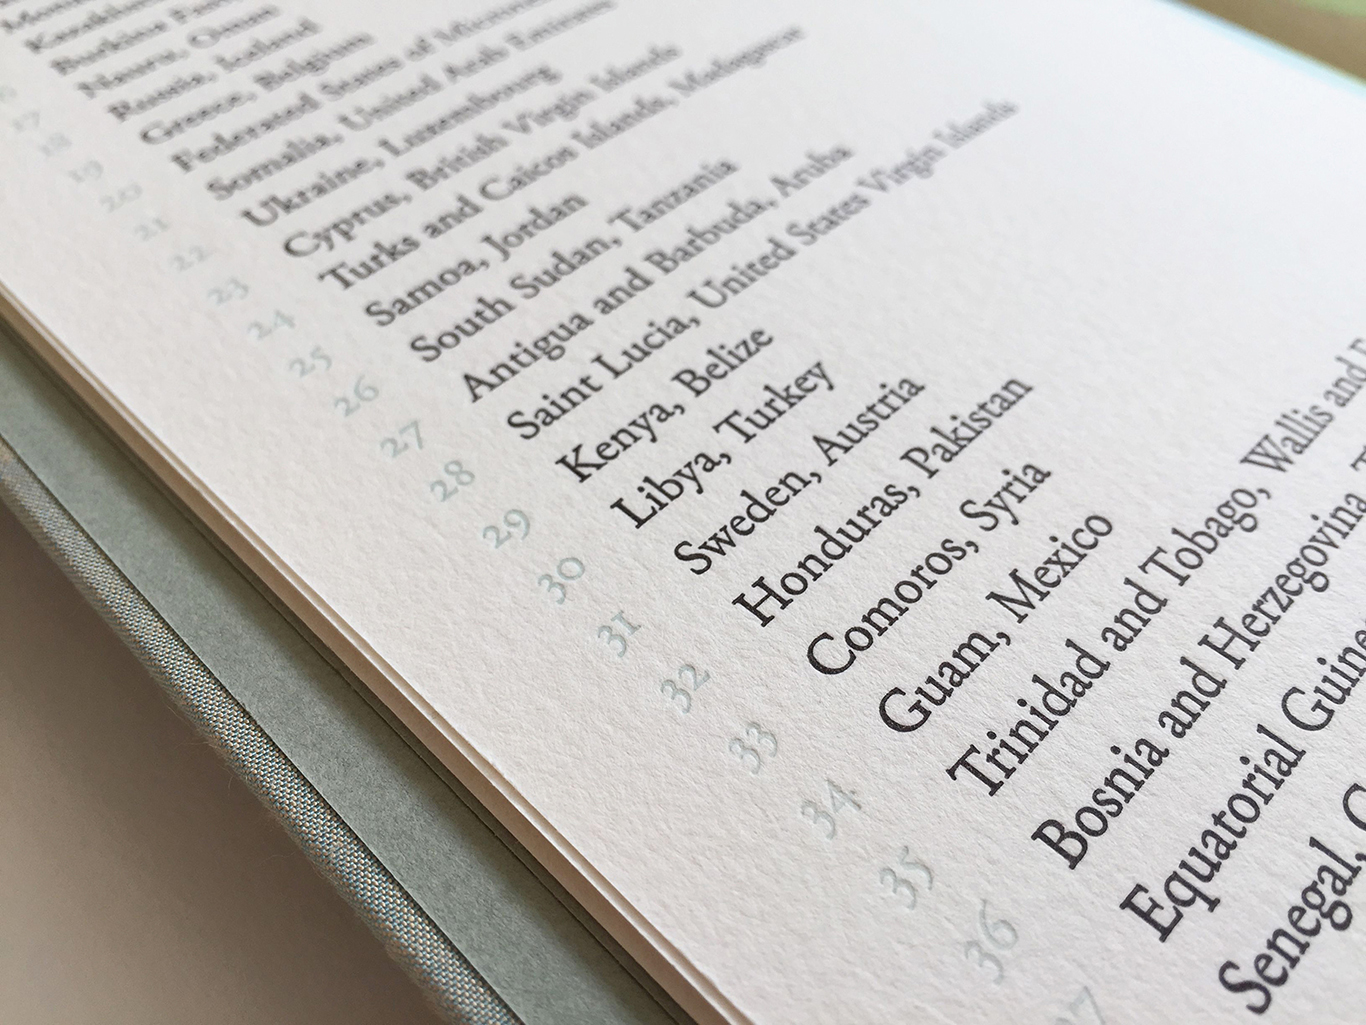 Kazakhstan
Burkina Faso
17 Nauru, Oman
18 Russia, Iceland
19 Greece, Belgium
20 Federated States of
21 Somalia, United Arab Emirates
22 Ukraine, Luxembourg
23 Cyprus, British Virgin Islands
24 Turks and Caicos Islands,
25 Samoa, Jordan
26 South Sudan, Tanzania
27 Antigua and Barbuda, Aruba
28 Saint Lucia, United States Virgin Islands
29 Kenya, Belize
30 Libya, Turkey
31 Sweden, Austria
32 Honduras, Pakistan
33 Comoros, Syria
34 Guam, Mexico
35 Trinidad and Tobago, Wallis and
36 Bosnia and Herzegovina,
37 Equatorial Guine
Senegal,